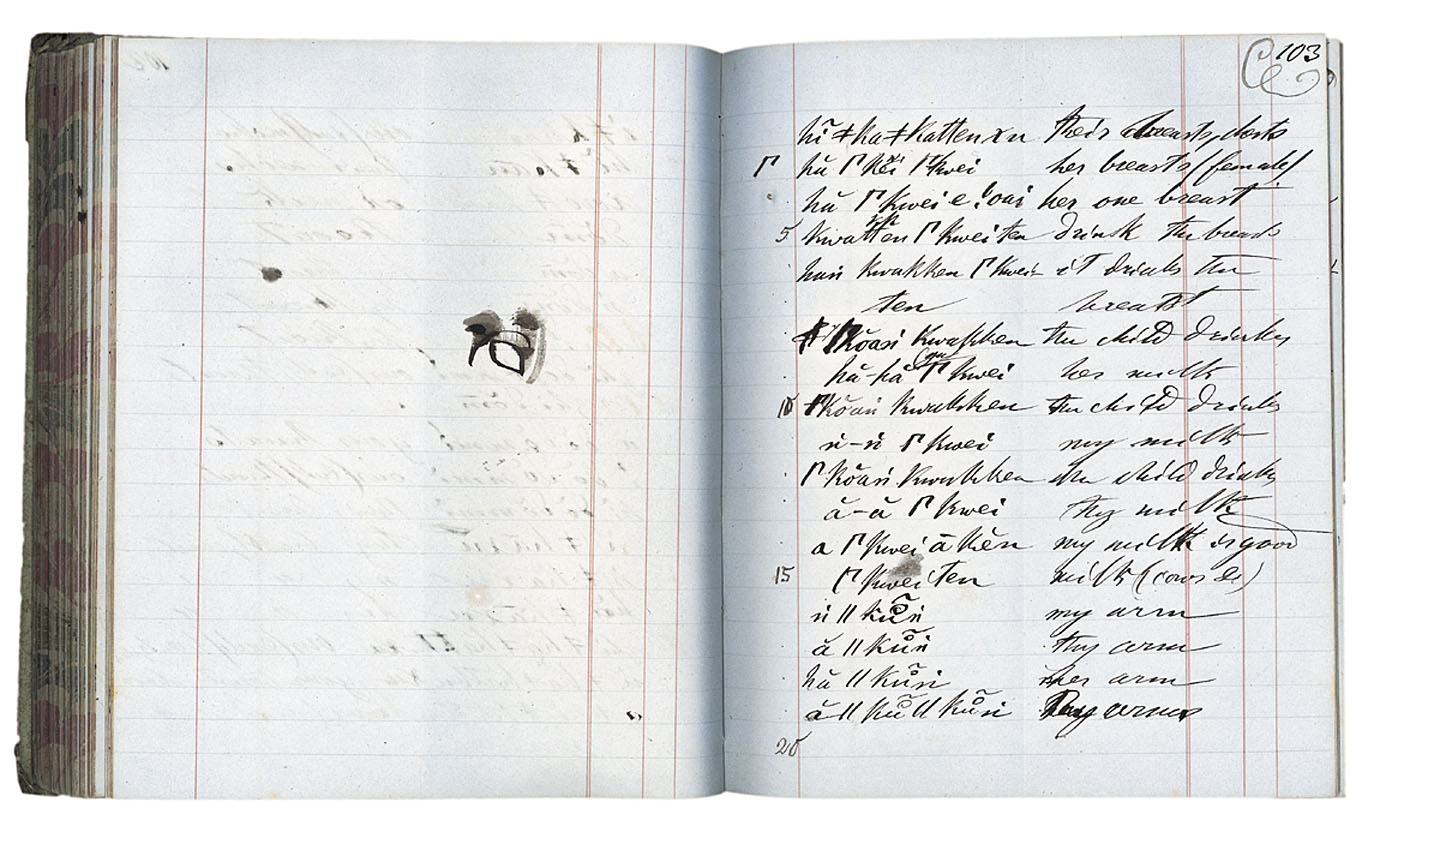 103
hĭ ǂka ǂkatten xu their breasts, chests
hă ſ˥ kwei her breasts (female)
hă ſ˥ kwei e !oai her one breast
5 kwatten ſ˥ kwei ten drink the breasts
han kwakken ſ˥ kwei- it drinks the
ten breast
ſ˥ kŏasi kwakken the child drinks
hă-hă ſ˥ kwei her milk
10 ſ˥ kŏasi kwakken the child drinks
ń-ń ſ˥ kwei my milk
ſ˥ kŏasi kwakken the child drinks
ă-ă ſ˥ kwei thy milk
a ſ˥ kwei ā kĕn my milk is good
15 ſ˥ kwei ten milk (cows &)
ń ǁ kŭń my arm
ă ǁ kŭń thy arm
hă ǁ kŭń her arm
ă ǁ kŭ ǁ kŭń thy arms
20